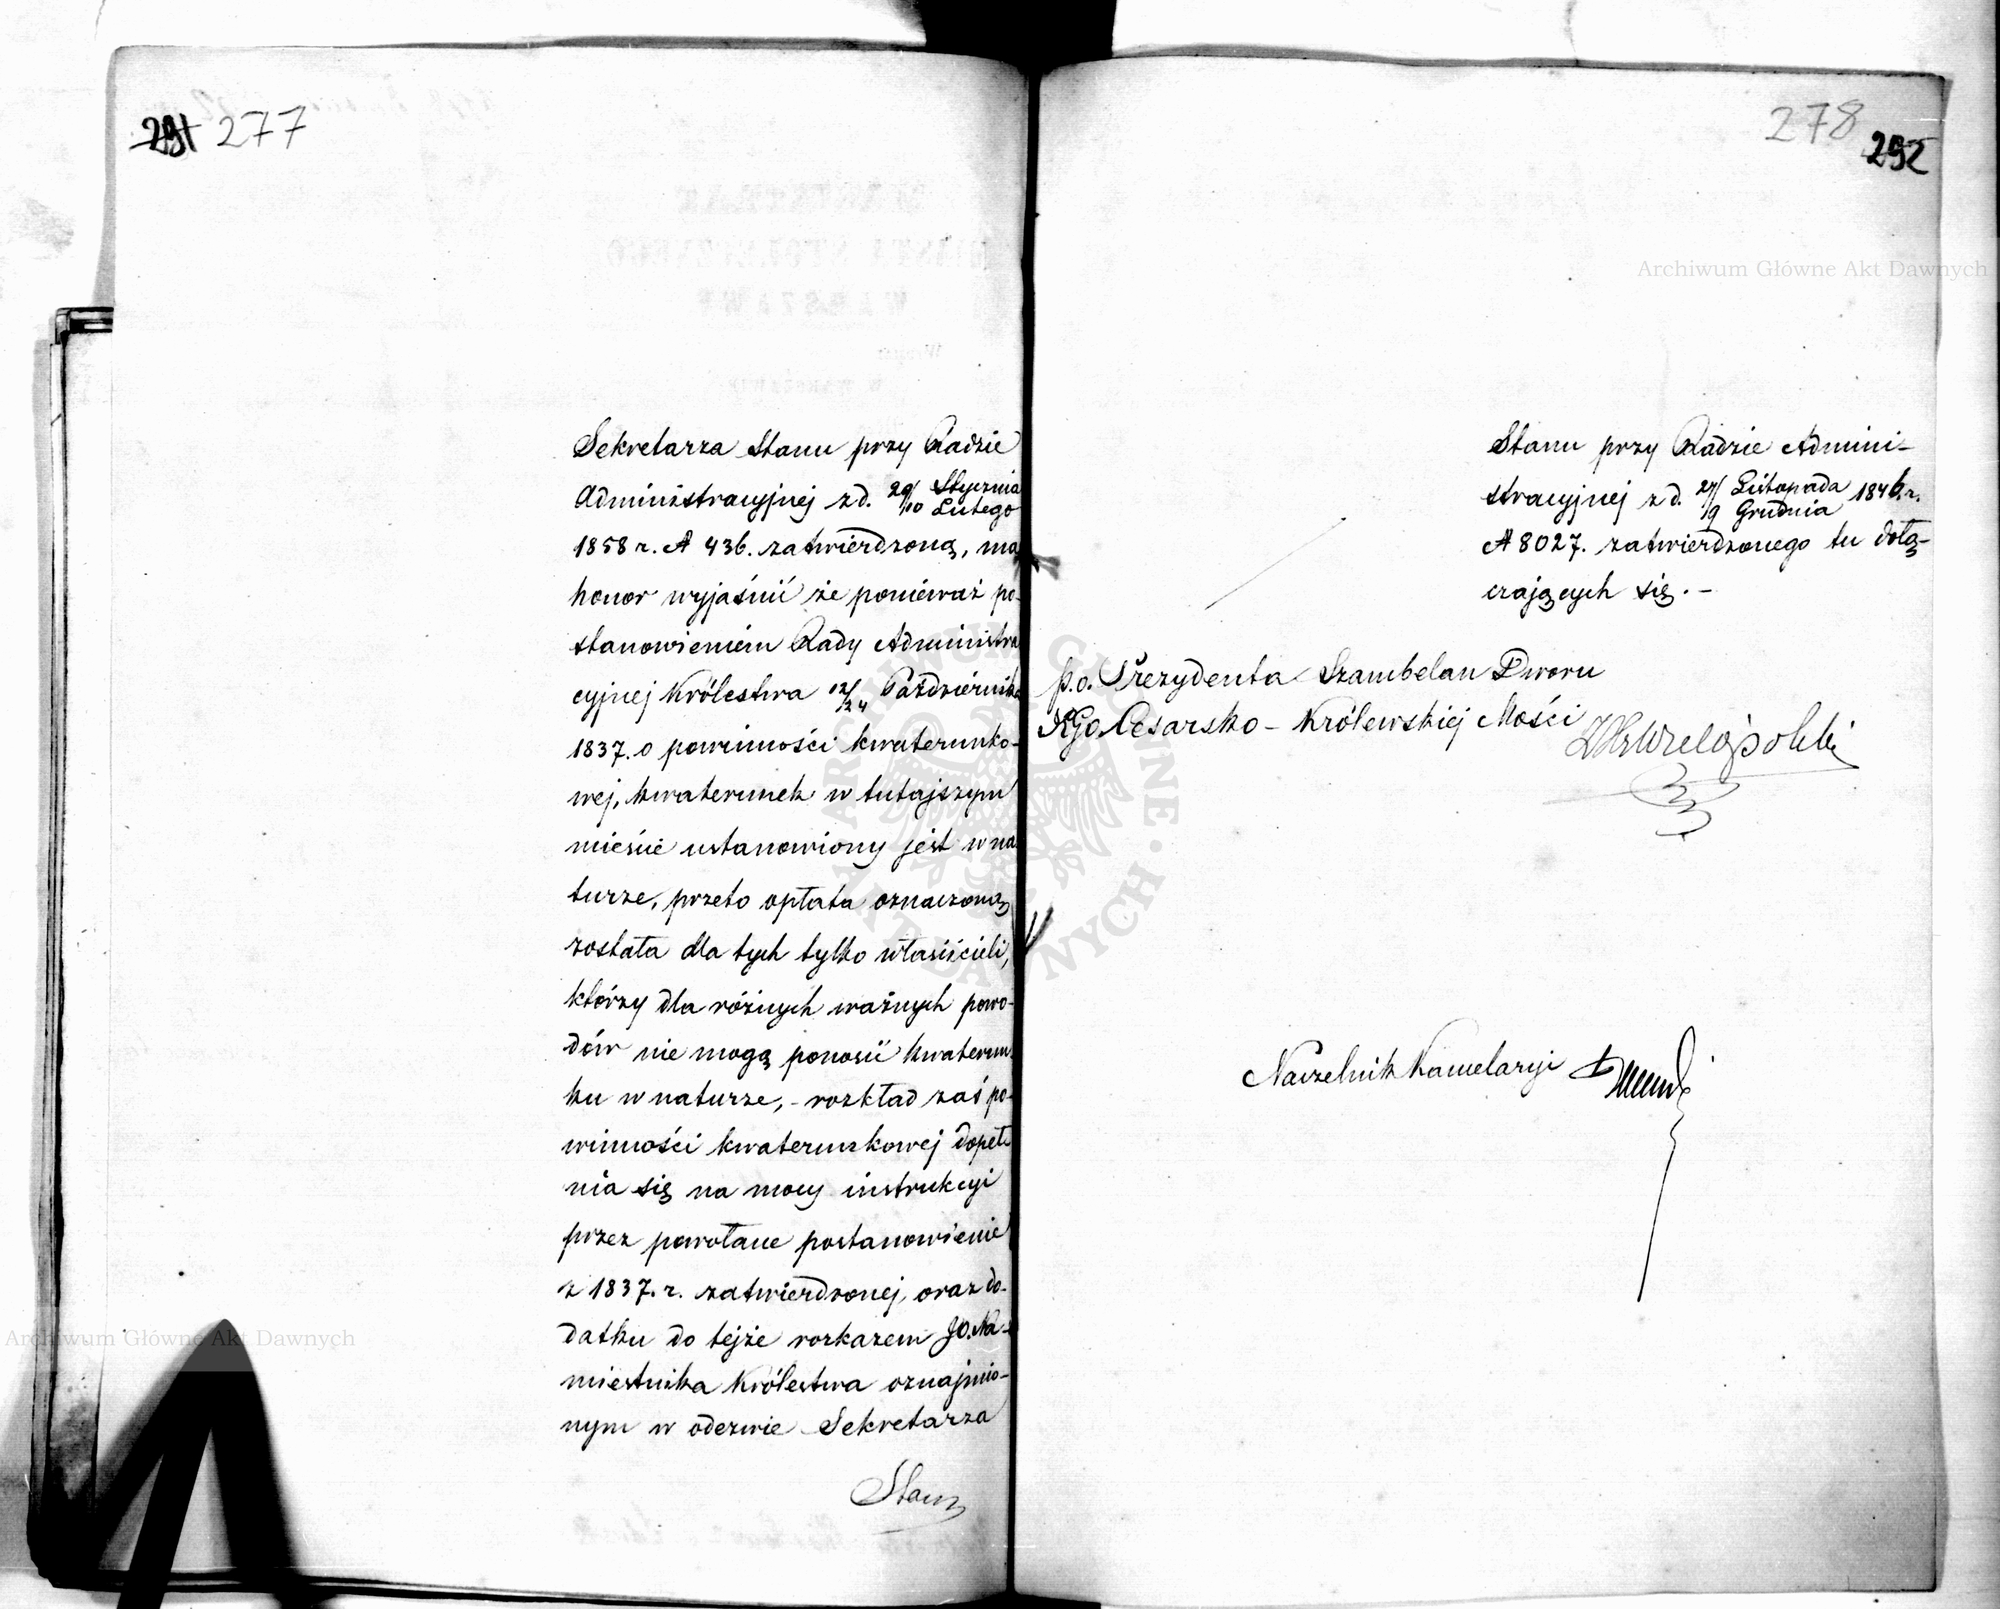 291 277
Sekretarza Stanu przy Radzie
Administracyjnej z d. 29/10 Stycznia Lutego
1858 r. N 436. zatwierdzoną, ma
honor wyjaśnić że ponieważ po-
stanowieniem Rady Administra
cyjnej Królestwa 12/24 Październik
1837. o powinności kwaterunko-
wej, kwaterunek w tutajszym
mieście ustanowiony jest w na
turze, przeto opłata oznaczoną
została dla tych tylko właścicieli,
którzy dla różnych ważnych powo-
dów nie mogą ponosić kwaterun-
ku w naturze, - rozkład zaś po-
winności kwaterunkowej dopeł-
nia się na mocy instrukcyi
przez powołane postanowienie
z 1837. r. zatwierdzonej, oraz do-
datku do tejże rozkazem JO. Na-
miestnika Królestwa oznajmio-
nym w odezwie Sekretarza
Stanu
278
292
Stanu przy Radzie Admini-
stracyjnej z d. 27/9 Listopada Grudnia 1846. r.
N 8027. zatwierdzonego tu dołą-
czających się. -
p.o. Prezydenta Szambelan Dworu
JEgo Cesarsko - Królewskiej Mości
Wielopolski
Naczelnik Kancelaryi
Archiwum Główne Akt Dawnych
Archiwum Główne Akt Dawnych
ARCHIWUM GŁÓWNE AKT DAWNYCH